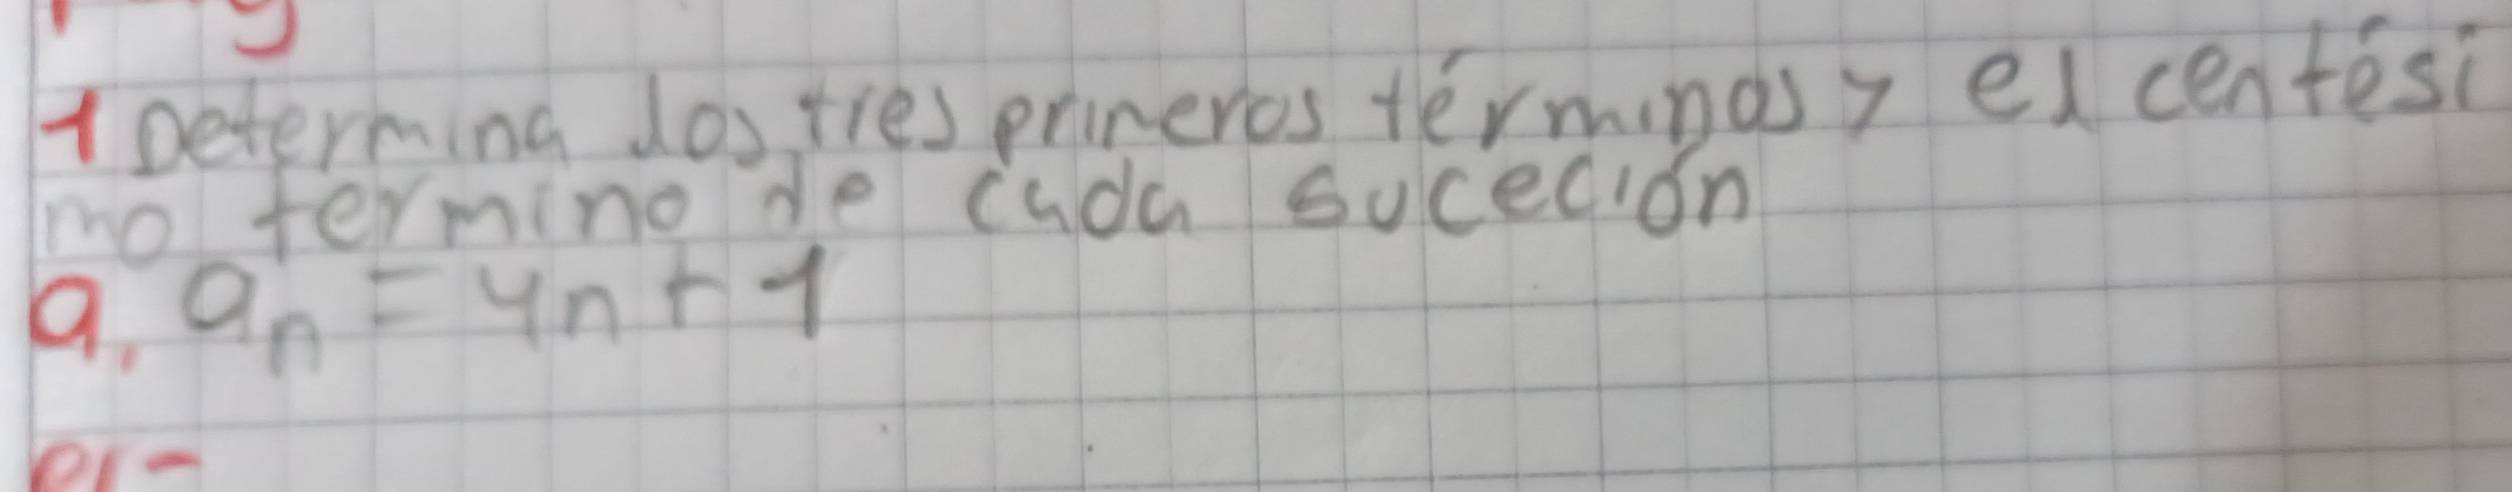 1 Determina los tres primeros términos y el centési
mo termino de cada suceción
a. aₙ = 4n + 1